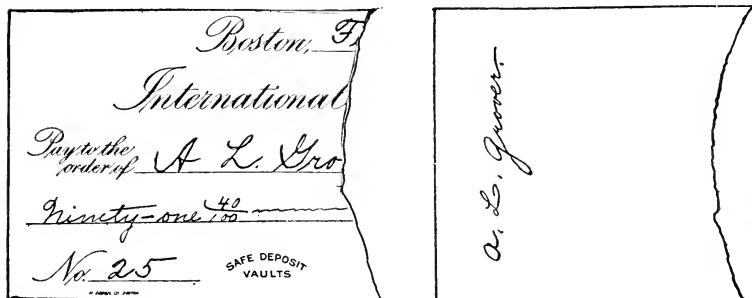 Boston, F
International
Pay to the
order of A L. Gro
Ninety-one 40/100
No. 25
SAFE DEPOSIT
VAULTS
A. L. Grover.